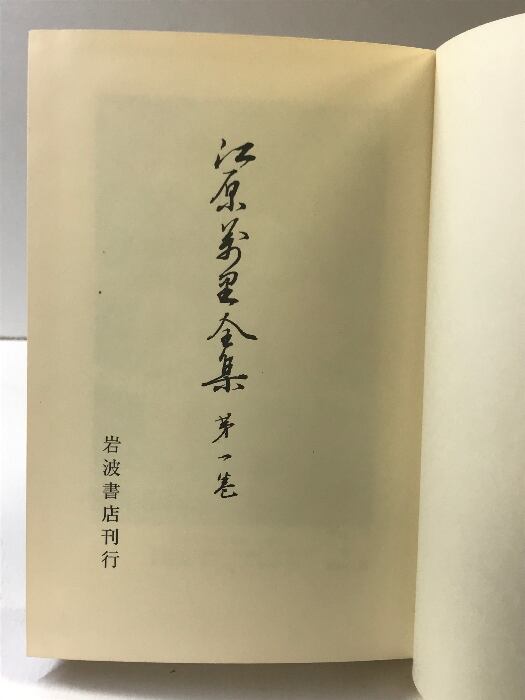 江原萬里全集 第一巻
岩波書店刊行